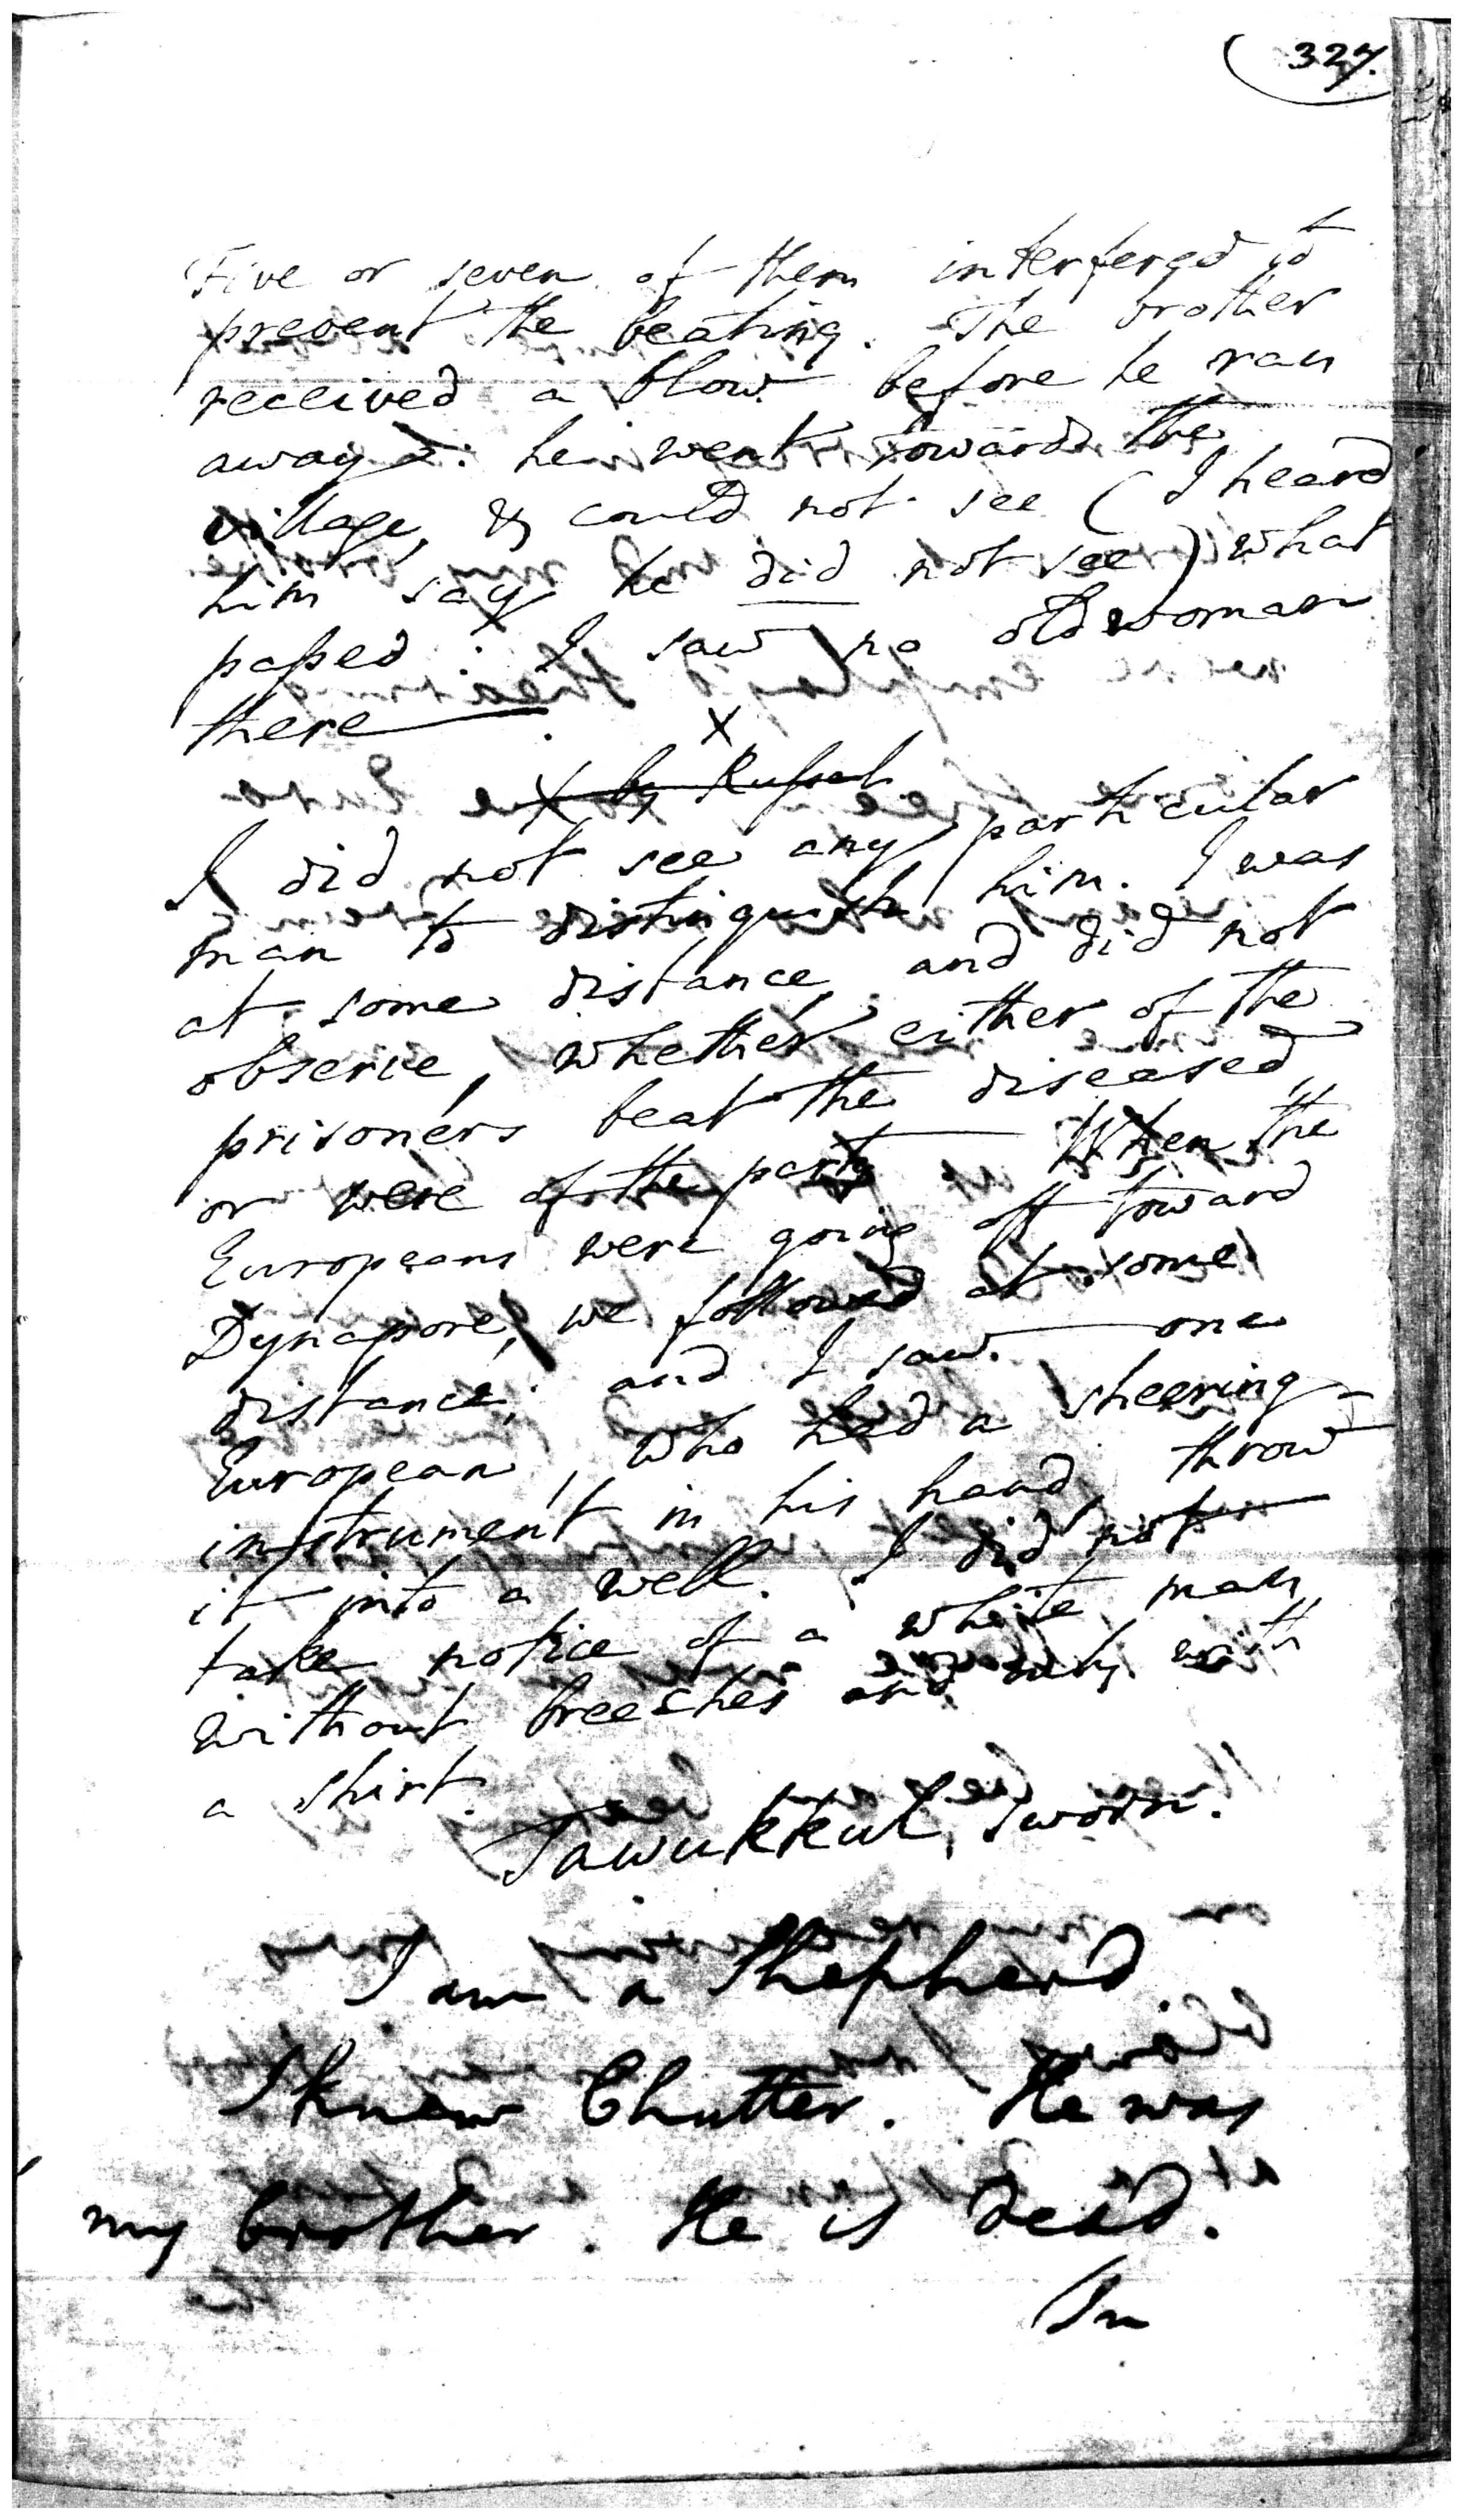 327.
Five or seven of them interfered to
prevent the beating. The brother
received a blow before he ran
away: he went towards the
village, & could not see (I heard
him say he did not see) what
paſsed: I saw no old woman
there.
X
X by Ruſsel.
I did not see any particular
man to distinguish him. I was
at some distance and did not
observe, whether either of the
prisoners beat the diseased,
or were of the party — When the
Europeans were going off toward
Dynapore, we followed at some
distance; and I saw one
European, who had a sheering-
instrument in his hand, throw
it into a well. I did not
take notice of a white man
without breeches and only with
a shirt.
Tawukkul, sworn.
I am a Shepherd
I knew Chutter. He was
my brother. He is dead.
In